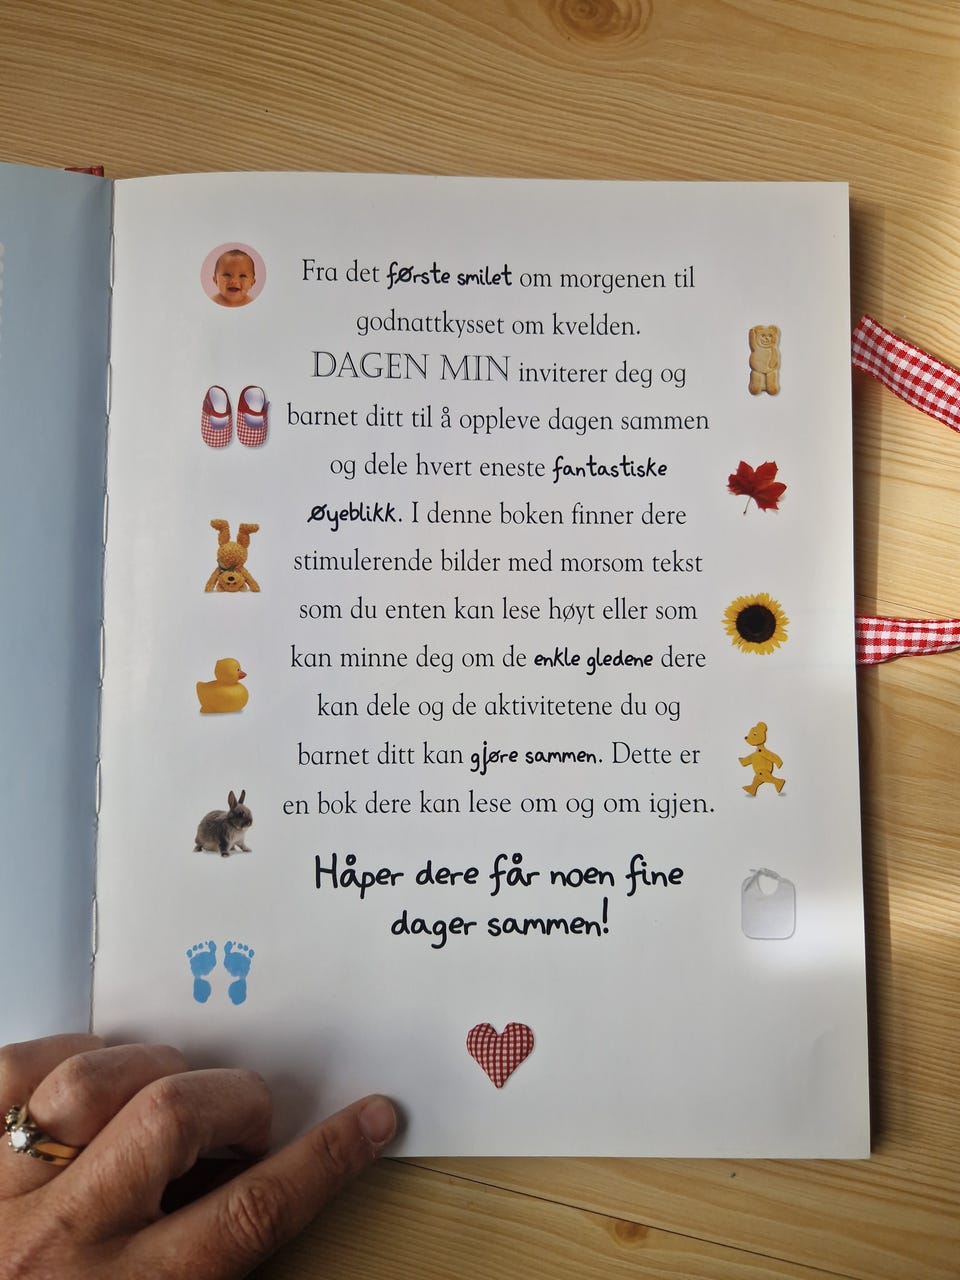 Fra det første smilet om morgenen til
godnattkysset om kvelden.
DAGEN MIN inviterer deg og
barnet ditt til å oppleve dagen sammen
og dele hvert eneste fantastiske
øyeblikk. I denne boken finner dere
stimulerende bilder med morsom tekst
som du enten kan lese høyt eller som
kan minne deg om de enkle gledene dere
kan dele og de aktivitetene du og
barnet ditt kan gjøre sammen. Dette er
en bok dere kan lese om og om igjen.
Håper dere får noen fine
dager sammen!